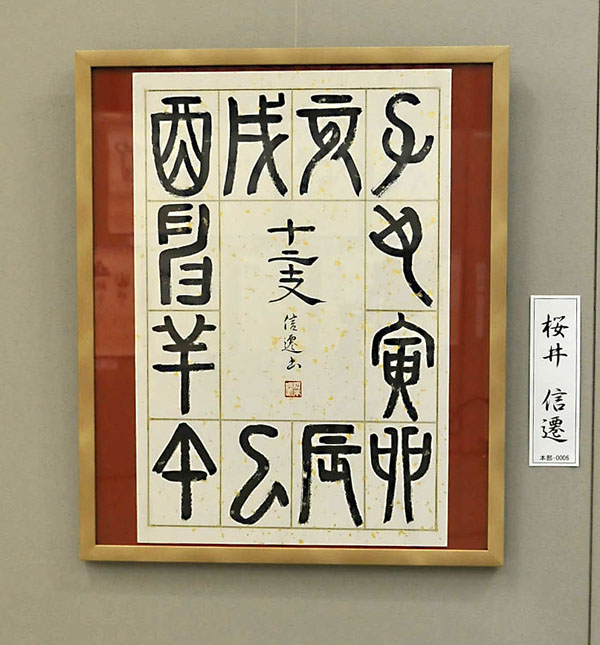 子
丑
寅
卯
辰
巳
午
未
申
酉
戌
亥
十二支
信遷書
桜井 信遷
本部-0006